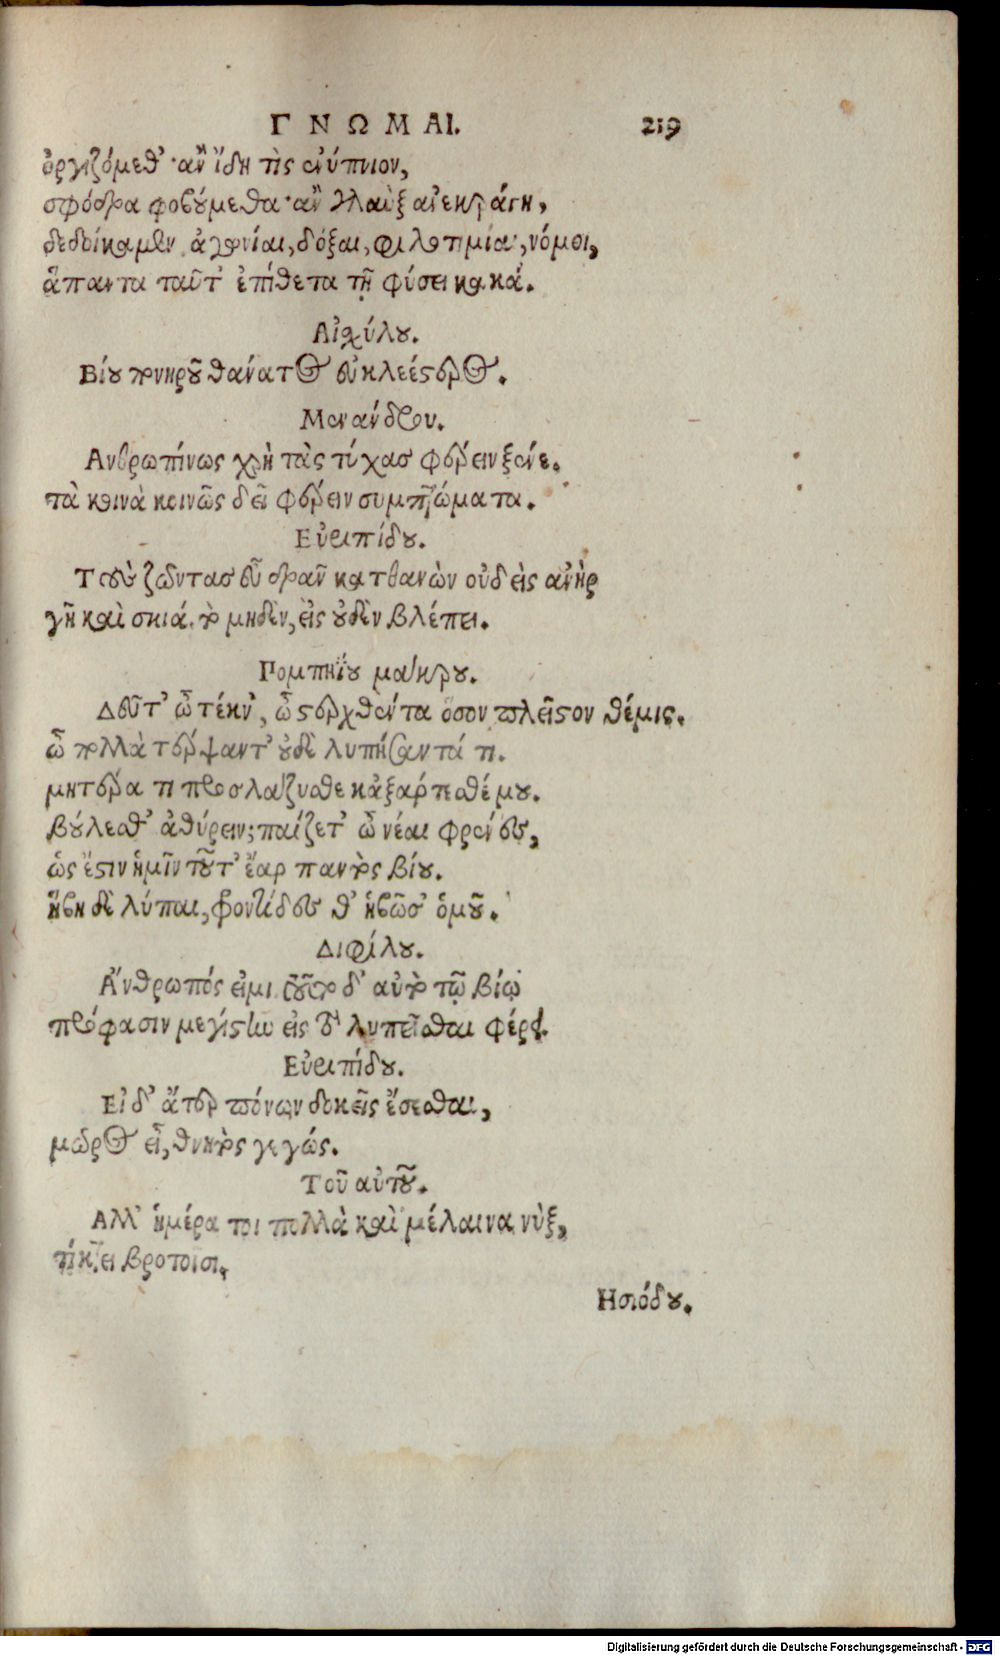 ΓΝΩΜΑΙ. 219
ὀργιζόμεθ' · ἂν ἴδῃ τὶς ἐνύπνιον,
σφόδρα φοβούμεθα · ἂν γλαὺξ ἀνεκράγῃ,
δεδοίκαμεν. ἀγωνίαι, δόξαι, φιλοτιμίαι, νόμοι,
ἅπαντα ταῦτ' ἐπίθετα τῇ φύσει κακά.
Αἰσχύλου.
Βίου πονηροῦ θάνατος εὐκλεέστερος.
Μενάνδρου.
Ανθρωπίνως χρὴ τὰς τύχας φέρειν ξένε.
τὰ κοινὰ κοινῶς δεῖ φέρειν συμπτώματα.
Εὐριπίδου.
Τοὺς ζῶντας εὖ δρᾶν κατθανὼν οὐδεὶς ἀνὴρ
γῆ καὶ σκιά. τὸ μηδὲν, εἰς οὐδὲν βλέπει.
Πομπηΐου μάκρου.
Δεῦτ' ὦ τέκν', ὦ στερχθέντα ὅσον πλεῖστον θέμις.
ὦ πολλὰ τέρψαντ' οὐδὲ λυπήσαντά τι.
μητέρα τι προσλάζυσθε κἀξαρπασθέ μου.
βούλεσθ' ἀθύρειν; παίζετ' ὦ νέαι φρένες,
ὡς ἔστιν ἡμῖν τοῦτ' ἔαρ παντὸς βίου.
ἥβη δὲ λύπαι, φροντίδες θ' ἡβῶσ' ὁμοῦ.
Διφίλου.
Ἄνθρωπός εἰμι. τοῦτο δ' αὐτὸ τῷ βίῳ
πρόφασιν μεγίστην εἰς τὸ λυπεῖσθαι φέρει.
Εὐριπίδου.
Εἰ δ' ἄτερ πόνων δοκεῖς ἔσεσθαι,
μῶρος εἶ, θνητὸς γεγώς.
Τοῦ αὐτοῦ.
Αλλ' ἡμέρα τοι πολλὰ καὶ μέλαινα νὺξ,
τίκτει βροτοῖσι.
Ησιόδου.
Digitalisierung gefördert durch die Deutsche Forschungsgemeinschaft - DFG